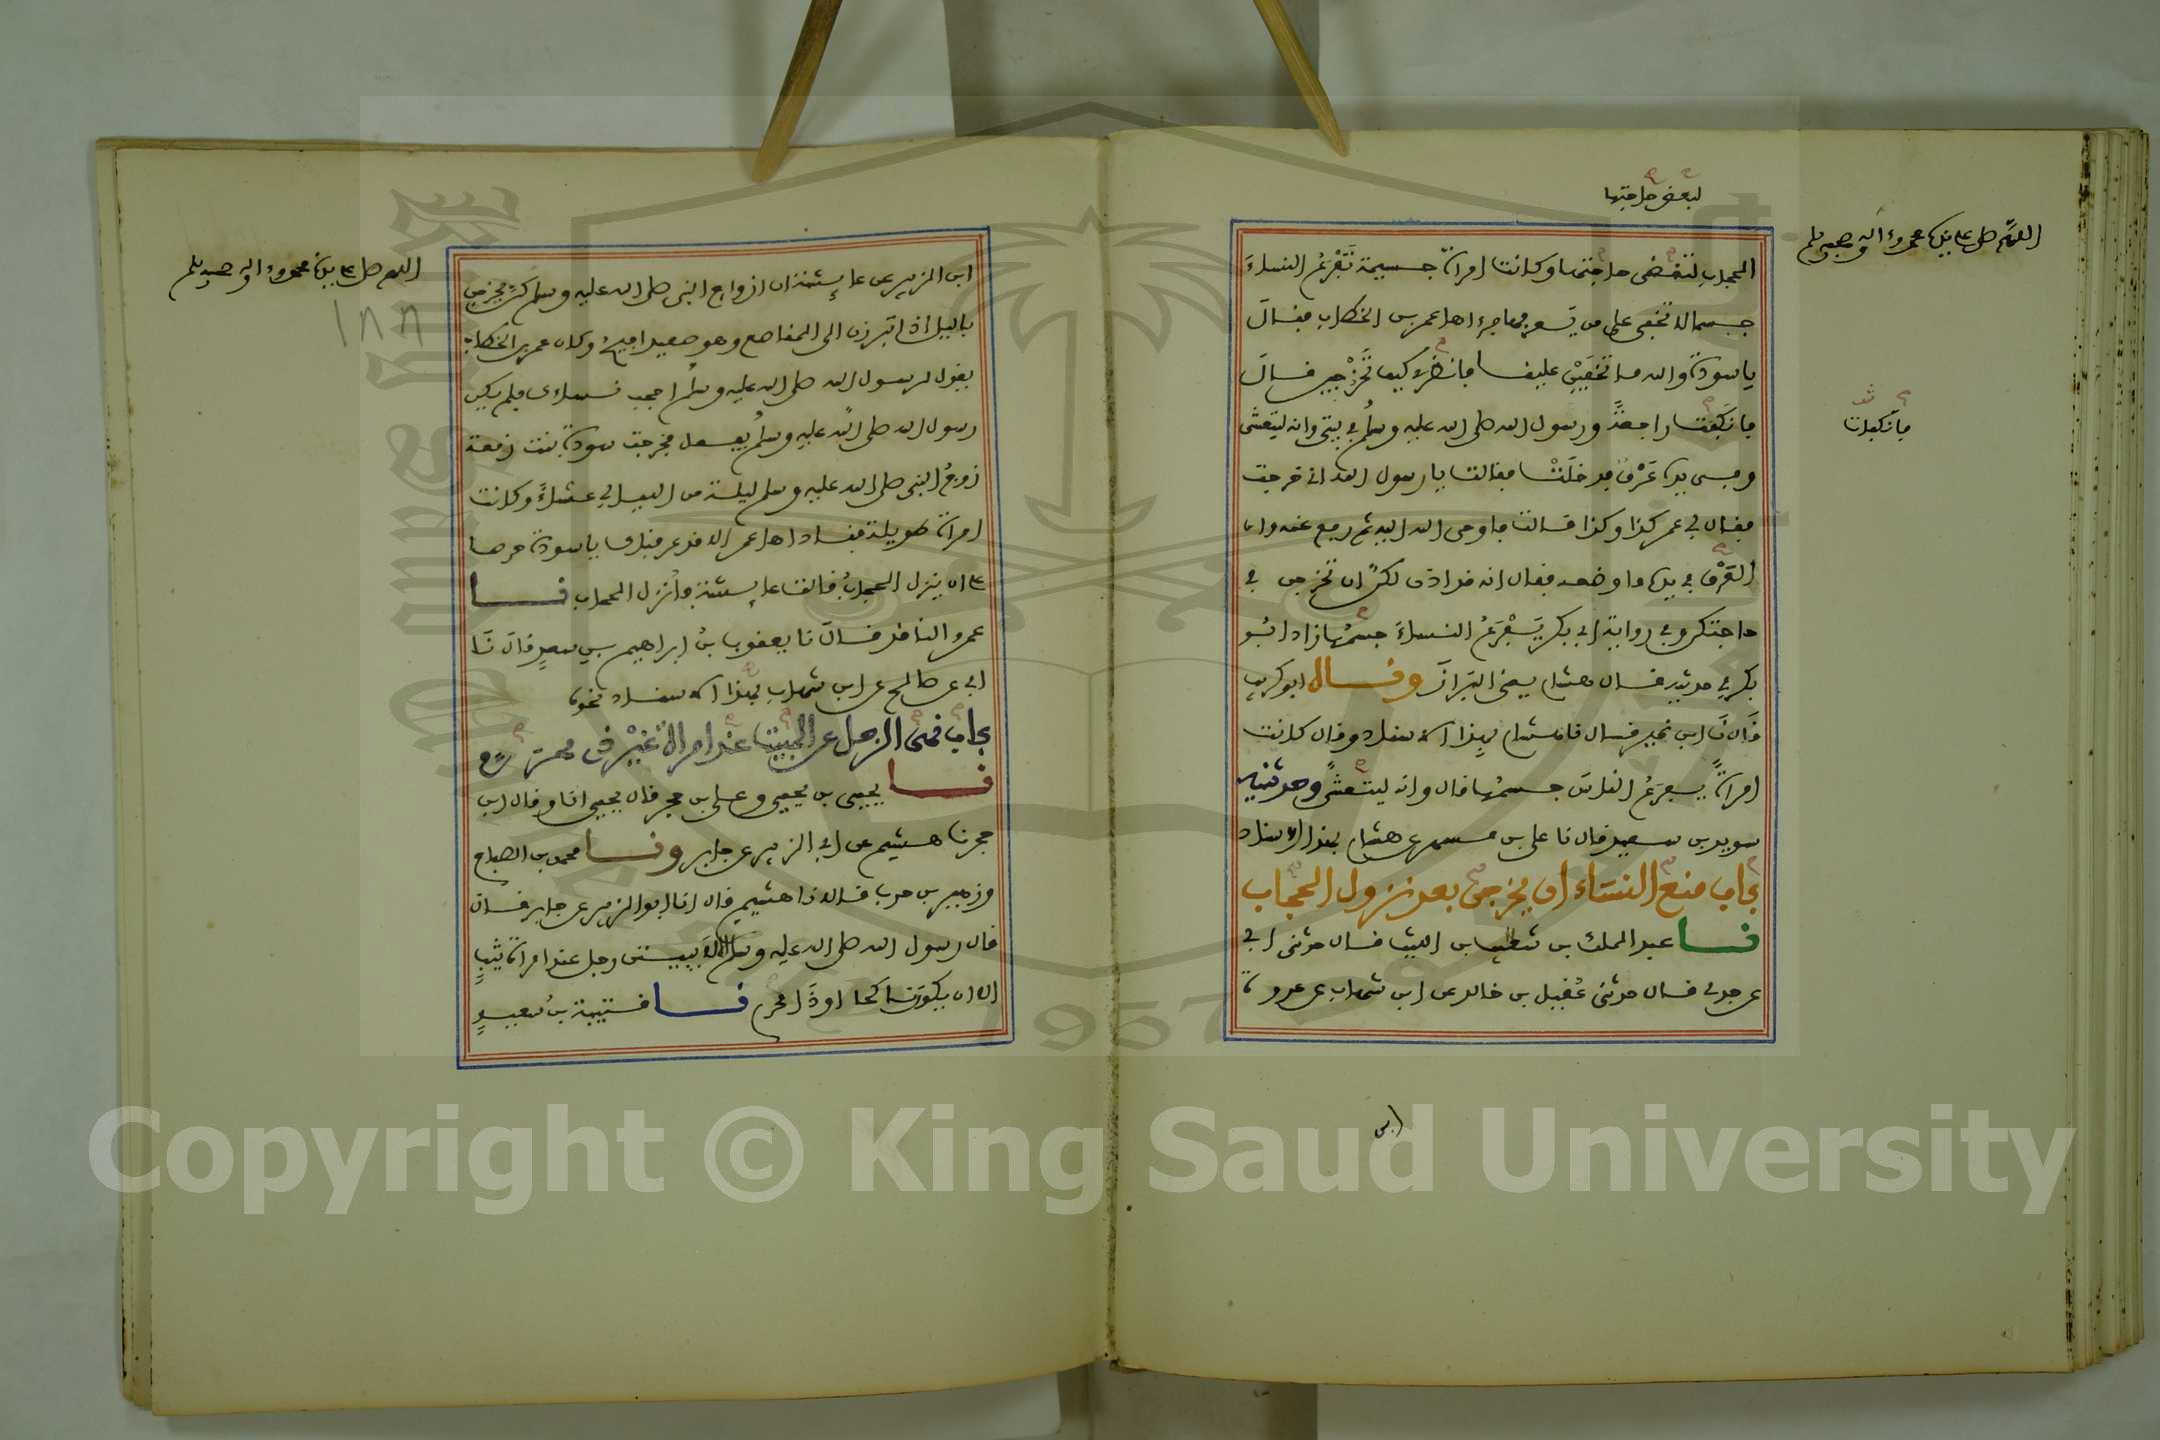 لبعض حاجتها
اللهم صل على نبينا محمد وءاله وصحبه وسلم
الحجاب لتقضي حاجتها وكانت امراة جسيمة تفرع النساء
جسما لا تخفى على من يعرفها فرءاها عمر بن الخطاب فقال
يا سودة والله ما تخفين علينا فانظري كيف تخرجين قال
فانكفت راجعة ورسول الله صلى الله عليه وسلم في بيتي وانه ليتعشى
فانكفات
وفي يده عرق فدخلت فقالت يا رسول الله اني خرجت
فقال لي عمر كذا وكذا قالت فاوحي الله اليه ثم رفع عنه وان
العرق في يده ما وضعه فقال انه قد اذن لكن ان تخرجن في
حاجتكن وفي رواية ابي بكر يفرع النساء جسمها زاد ابو
بكر في حديثه فقال هشام يعني البراز وقال ابو كريب
قال نا ابن نمير قال نا هشام بهذا الاسناد وقال كانت
امراة يفرع الناس جسمها قال وانه ليتعشى وحدثنيه
سويد بن سعيد قال نا علي بن مسهر عن هشام بهذا الاسناد
باب منع النساء ان يخرجن بعد نزول الحجاب
نا عبد الملك بن شعيب بن الليث قال حدثني ابي
عن جدي قال حدثني عقيل بن خالد عن ابن شهاب عن عروة
ابن
اللهم صل على نبينا محمد وءاله وصحبه وسلم
١٨٨
ابن الزبير عن عايشة ان ازواج النبي صلى الله عليه وسلم كن يخرجن
بالليل اذا تبرزن الى المناصع وهو صعيد افيح وكان عمر بن الخطاب
يقول لرسول الله صلى الله عليه وسلم احجب نساءك فلم يكن
رسول الله صلى الله عليه وسلم يفعل فخرجت سودة بنت زمعة
زوج النبي صلى الله عليه وسلم ليلة من الليالي عشاء وكانت
امراة طويلة فناداها عمر الا قد عرفناك يا سودة حرصا
على ان ينزل الحجاب قالت عايشة فانزل الحجاب نا
عمرو الناقد قال نا يعقوب بن ابراهيم بن سعد قال نا
ابي عن صالح عن ابن شهاب بهذا الاسناد نحوه
باب نهي الرجل عن المبيت عند امراة غير ذي محرم
نا يحيى بن يحيى وعلي بن حجر قال يحيى انا وقال ابن
حجر نا هشيم عن ابي الزبير عن جابر ونا محمد بن الصباح
وزهير بن حرب قالا نا هشيم قال انا ابو الزبير عن جابر قال
قال رسول الله صلى الله عليه وسلم الا لا يبيتن رجل عند امراة ثيب
الا ان يكون ناكحا او ذا محرم نا قتيبة بن سعيد
Copyright © King Saud University
1957